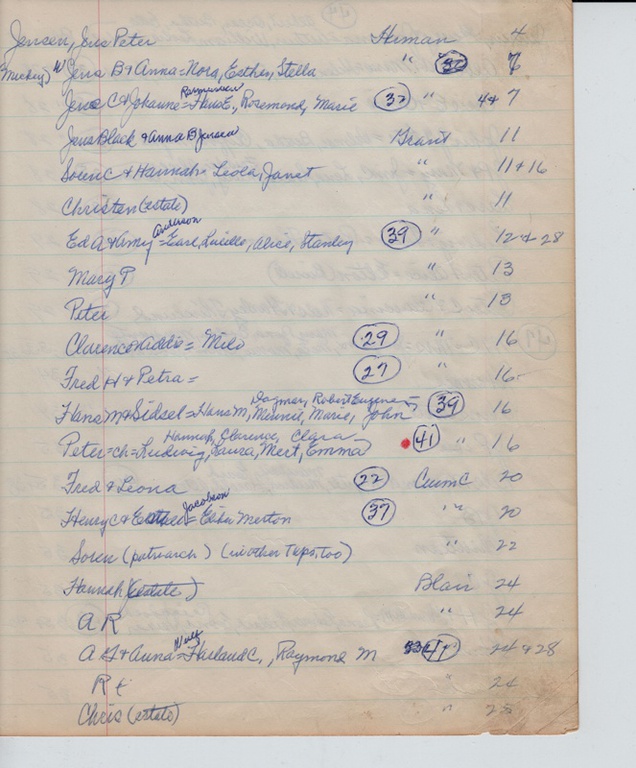 Jensen, Eric Peter Herman 4
(Mickey) Jens B & Anna = Nora, Esther, Stella " 32 7
Rasmussen
Jens C & Johanne = Hans E., Rosemond, Marie 37 4 & 7
Jens Black & Anna B Jensen Grant 11
Soren C & Hannah = Leola, Janet " 11 & 16
Christen (estate) " 11
Anderson
Ed A & Amy = Earl, Lucille, Alice, Stanley 39 " 12 & 28
Mary P " 13
Peter " 13
Clarence & Addie = Milo 29 " 16
Fred H & Petra = 27 " 16
Dagmar, Robert Eugene
Hans M & Sidsel = Hans M, Minnie, Marie, John 39 16
Hannah, Clarence, Clara
Peter = ch = Ludwig, Laura, Mert, Emma 41 " 16
Fred & Leona 22 CumC 20
Jacobson
Henry C & = Elda Merton 37 " " 20
Soren (patriarch) (in other Twps, too) " 22
Hannah (estate) Blair 24
A R " 24
Wulf
A G & Anna = Harland C., Raymond M 41 24 & 28
R t " 24
Chris (estate) "